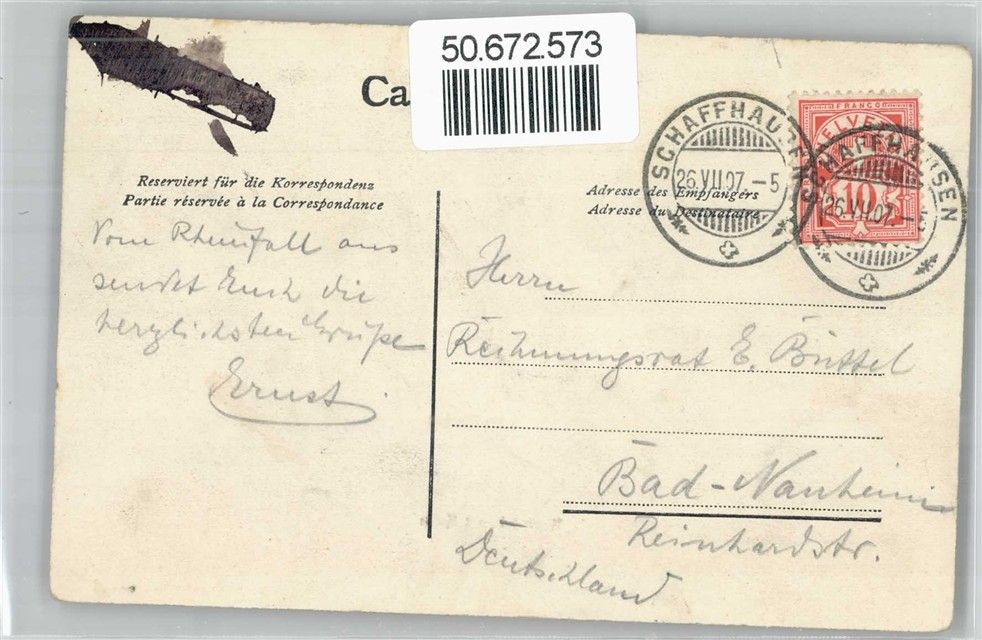 50.672.573
Ca
SCHAFFHAUSEN
26.VII.07.–5
FRANCO
HELVETIA
10
SCHAFFHAUSEN
26.VII.07.–
Reserviert für die Korrespondenz
Partie réservée à la Correspondance
Adresse des Empfängers
Adresse du Destinataire
Vom Rheinfall aus
sendet Euch die
herzlichsten Grüße
Ernst
Herrn
Rechnungsrat E. Büttel
Bad-Nauheim
Reinhardstr.
Deutschland